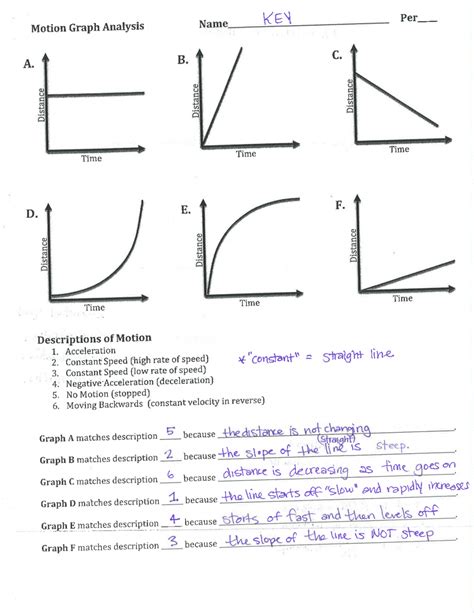 Motion Graph Analysis Name KEY Per
A. B. C.
Distance Distance Distance
Time Time Time
D. E. F.
Distance Distance Distance
Time Time Time
Descriptions of Motion
1. Acceleration
2. Constant Speed (high rate of speed)
3. Constant Speed (low rate of speed)
4. Negative Acceleration (deceleration)
5. No Motion (stopped)
6. Moving Backwards (constant velocity in reverse)
* "constant" = straight line
Graph A matches description 5 because the distance is not changing
(straight)
Graph B matches description 2 because the slope of the line is steep.
Graph C matches description 6 because distance is decreasing as time goes on
Graph D matches description 1 because the line starts off "slow" and rapidly increases
Graph E matches description 4 because starts of fast and then levels off
Graph F matches description 3 because the slope of the line is NOT steep